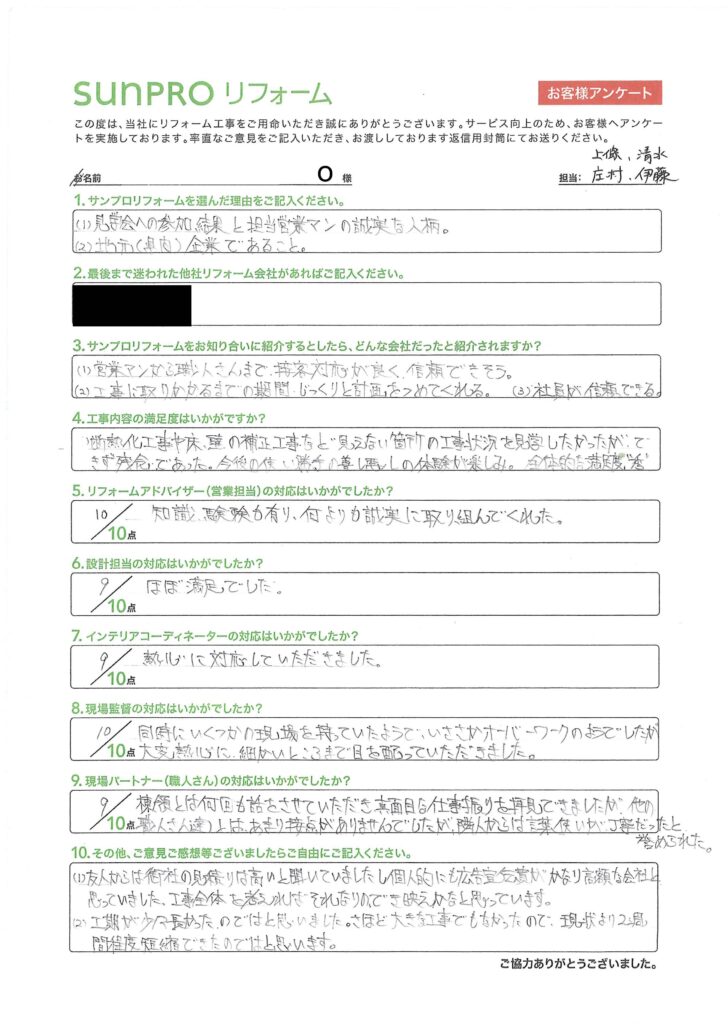 SUNPRO リフォーム
お客様アンケート
この度は、当社にリフォーム工事をご用命いただき誠にありがとうございます。サービス向上のため、お客様へアンケー
トを実施しております。率直なご意見をご記入いただき、お渡ししております返信用封筒にてお送りください。
上條、清水
お名前 O 様 担当: 庄村、伊藤
1. サンプロリフォームを選んだ理由をご記入ください。
(1)見学会への参加結果と担当営業マンの誠実な人柄。
(2)地元(県内)企業であること。
2. 最後まで迷われた他社リフォーム会社があればご記入ください。
3. サンプロリフォームをお知り合いに紹介するとしたら、どんな会社だったと紹介されますか?
(1)営業マンから職人さんまで、接客対応が良く、信頼できそう。
(2)工事に取りかかるまでの期間、じっくりと計画をつめてくれる。 (3)社員が信頼できる。
4. 工事内容の満足度はいかがですか?
断熱化工事や床、壁の補正工事など見えない箇所の工事状況を見学したかったが、で
きず残念であった。今後の使い勝手の 体験が楽しみ。全体的な満足度
5. リフォームアドバイザー(営業担当)の対応はいかがでしたか?
10/10点 知識、験験力有り、何よりも誠実に取り組んでくれた。
6. 設計担当の対応はいかがでしたか?
9/10点 ほぼ満足でした。
7. インテリアコーディネーターの対応はいかがでしたか?
9/10点 熱心に対応していただきました。
8. 現場監督の対応はいかがでしたか?
10/10点 同時にいくつかの現場を持っていたようで、いささかオーバーワークのようでしたが
大変熱心に、細かいところまで目を配っていただきました。
9. 現場パートナー(職人さん)の対応はいかがでしたか?
9/10点 棟領とは何回も話をさせていただき真面目な仕事振りを拝見できましたが、他の
職人さん達とは、あまり接点がありませんでしたが、隣人からは言葉使いが、丁寧だったと
誉められた。
10. その他、ご意見ご感想等ございましたらご自由にご記入ください。
(1)友人からは御社の見積りは高いと聞いていましたし個人的にも広告宣伝費がかなり高額な会社と
思っていました、工事全体を考えればそれなりのでき映えかなと思っています。
(2)工期が少々長かったのではと思いました。さほど大きな工事でもなかったので、現状より2週
間程度短縮できたのではと思います。
ご協力ありがとうございました。